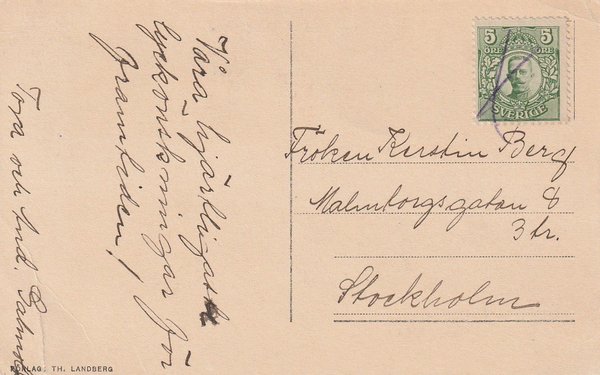 Våra hjärtligaste
lyckönskningar för
framtiden!
Tora och
5 5
ÖRE ÖRE
SVERIGE
Fröken Kerstin Berg
Malmborgsgatan 8
3 tr.
Stockholm
FÖRLAG: TH. LANDBERG